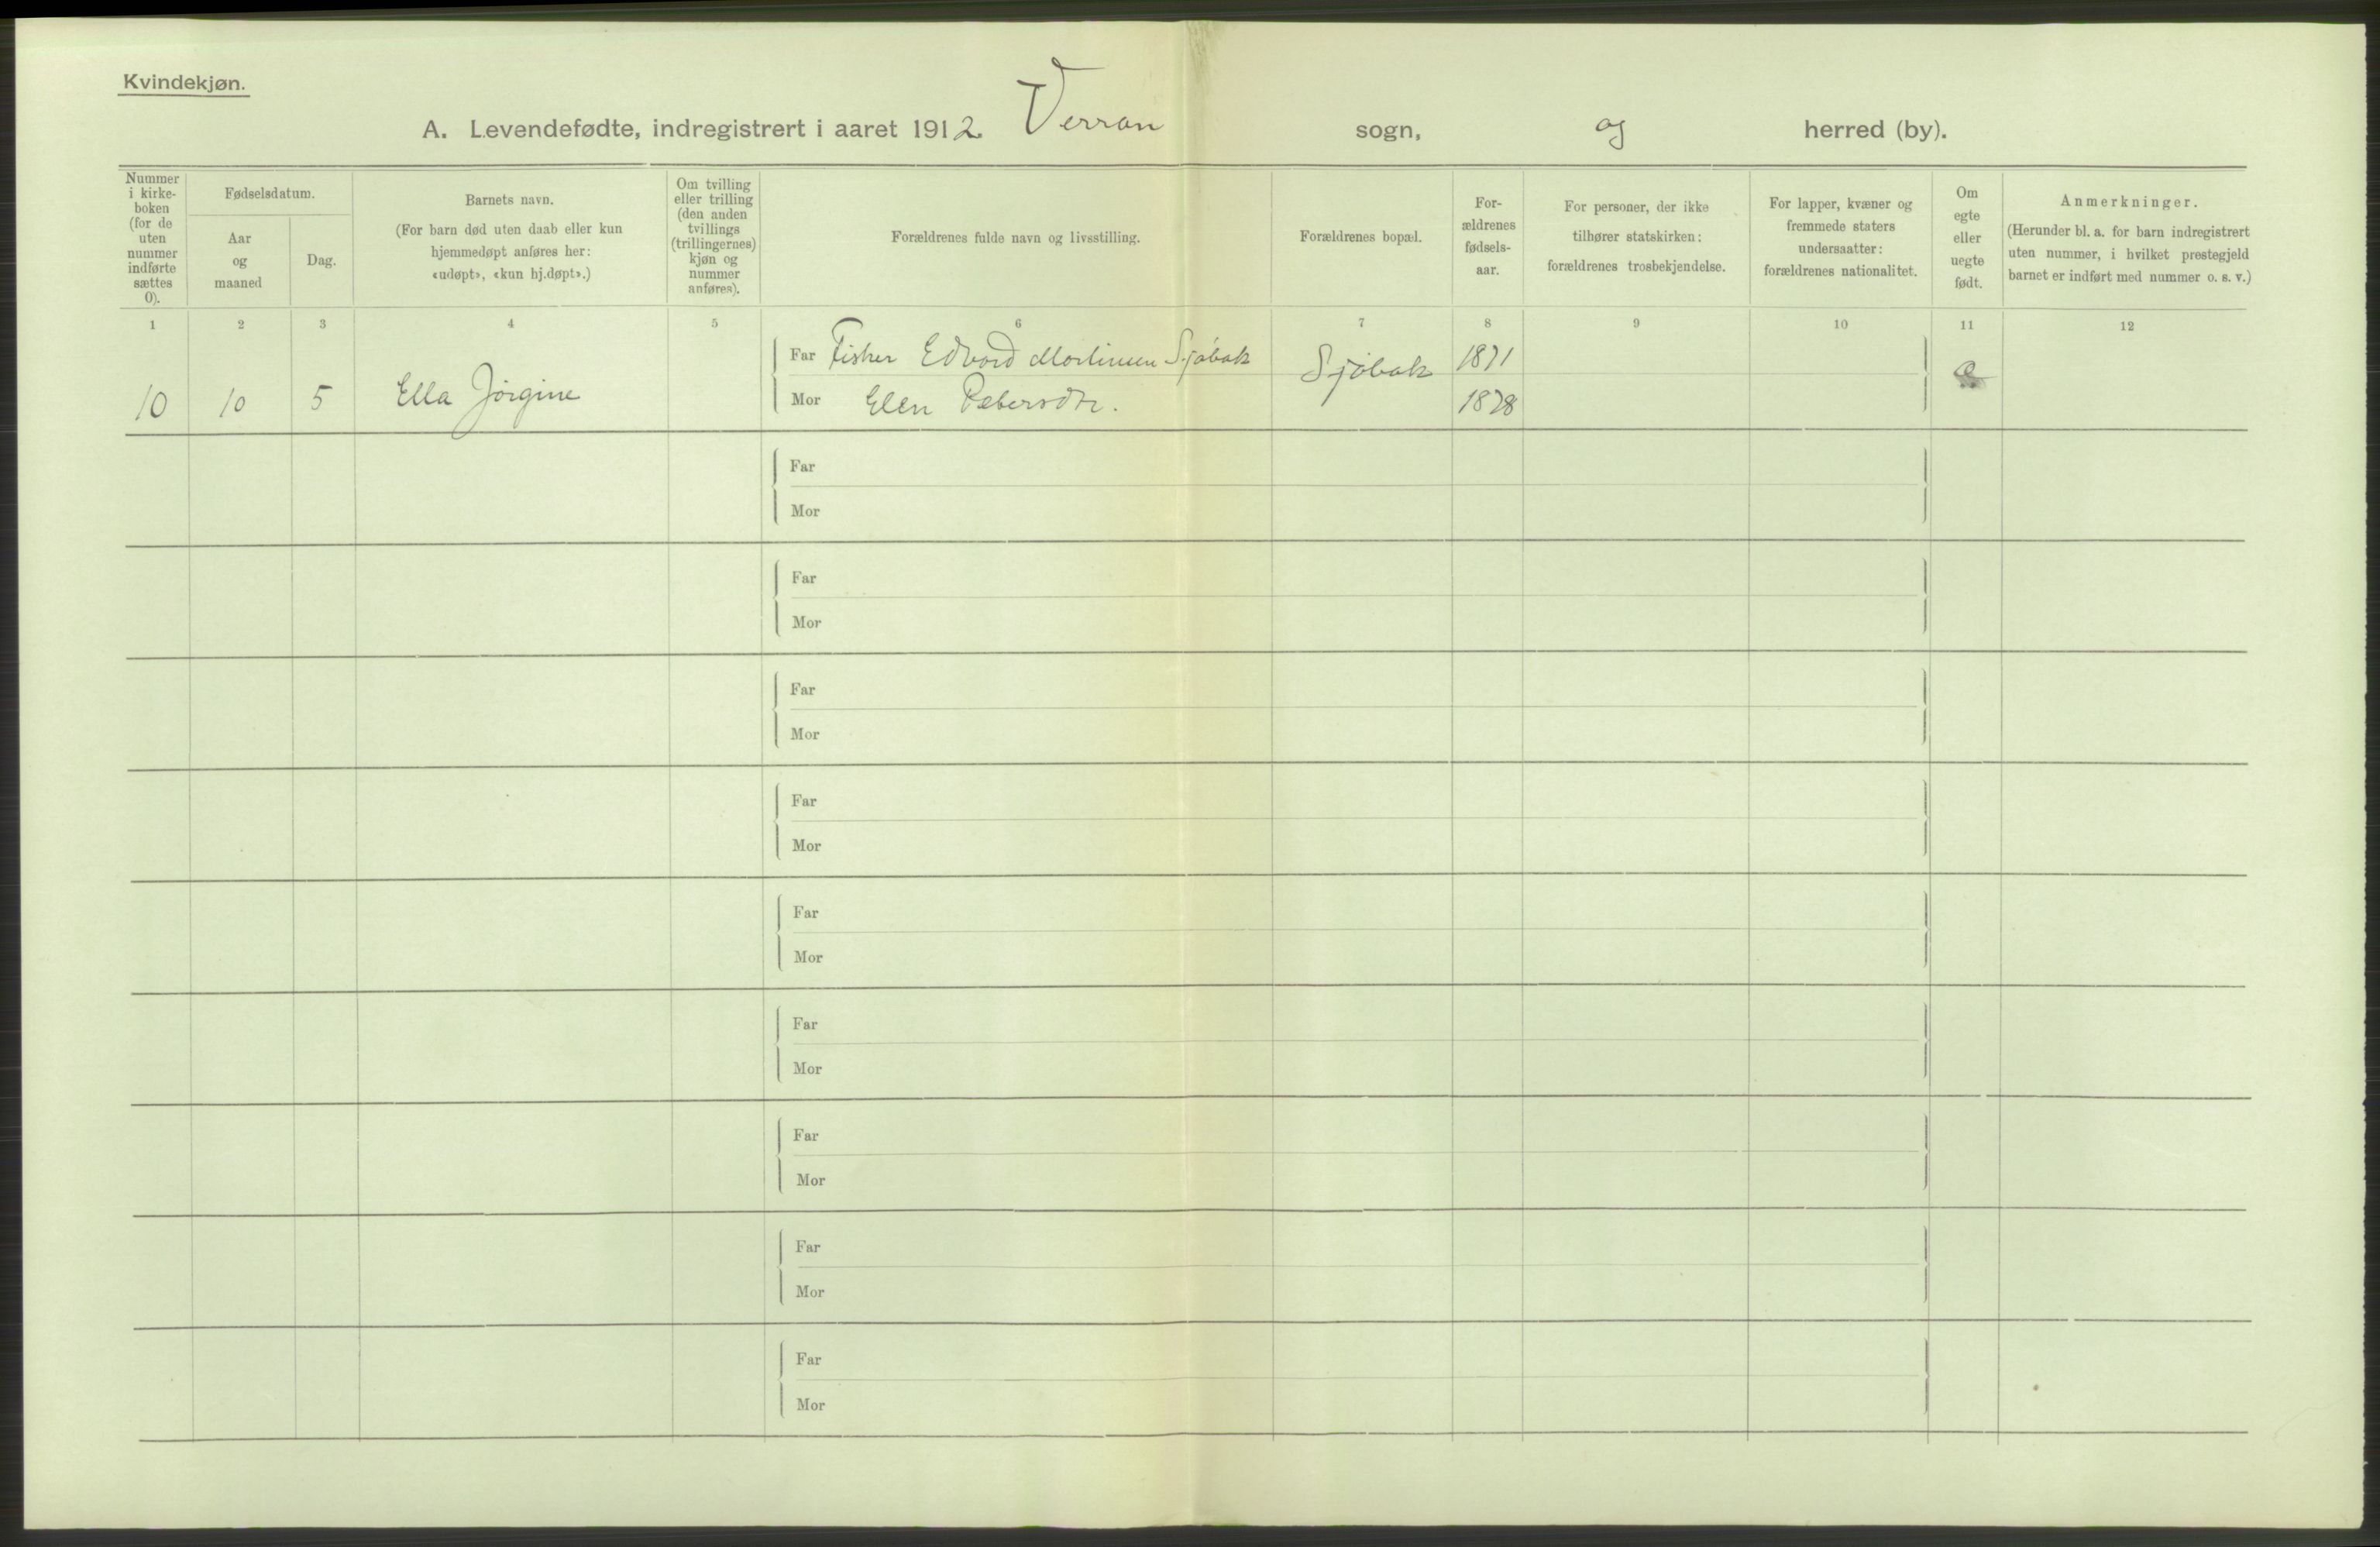 Kvindekjøn.
A. Levendefødte, indregistrert i aaret 1912. Verran sogn, og herred (by).
Nummer i kirke-boken (for de uten nummer indførte sættes 0).
Fødselsdatum.
Aar og maaned
Dag.
Barnets navn.
(For barn død uten daab eller kun
hjemmedøpt anføres her:
«udøpt», «kun hj.døpt».)
Om tvilling
eller trilling
(den anden
tvillings
(trillingernes)
kjøn og
nummer
anføres).
Forældrenes fulde navn og livsstilling.
Forældrenes bopæl.
For-
ældrenes
fødsels-
aar.
For personer, der ikke
tilhører statskirken:
forældrenes trosbekjendelse.
For lapper, kvæner og
fremmede staters
undersaatter:
forældrenes nationalitet.
Om
egte
eller
uegte
født.
Anmerkninger.
(Herunder bl. a. for barn indregistrert
uten nummer, i hvilket prestegjeld
barnet er indført med nummer o. s. v.)
1 2 3 4 5 6 7 8 9 10 11 12
Far Fisker Edvard Mortinsen Sjøbak Sjøbak 1871 e
10 10 5 Ella Jørgine Mor Elen Petersdtr. 1878
Far
Mor
Far
Mor
Far
Mor
Far
Mor
Far
Mor
Far
Mor
Far
Mor
Far
Mor
Far
Mor